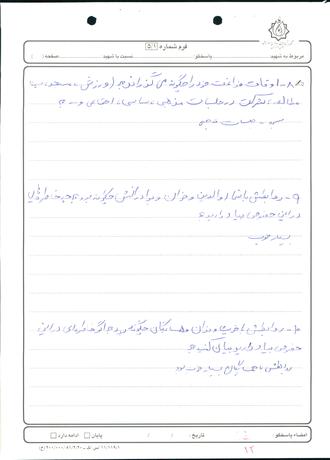 فرم شماره (۵/۱)
مربوط به شهید پاسخگو: نسبت با شهید صفحه: ( )
۸- اوقات فراغت خود را چگونه می گذراند؟ (ورزش، مسجد، سینما
مطالعه، شرکت در جلسات مذهبی، سیاسی، اجتماعی و ...)
۹- روابطش با شما (والدین) و خواهران و برادرانش چگونه بود؟ چه خاطره‌ای
در این خصوص بیاد دارید؟
بسیار خوب
۱۰- روابطش با همسایگان چگونه بود؟ اگر خاطره‌ای در این
خصوص بیاد دارید بیان کنید؟
روابطش با همسایگان بسیار خوب بود
امضاء پاسخگو: تاریخ: / / پایان □ ادامه دارد □
۱۲